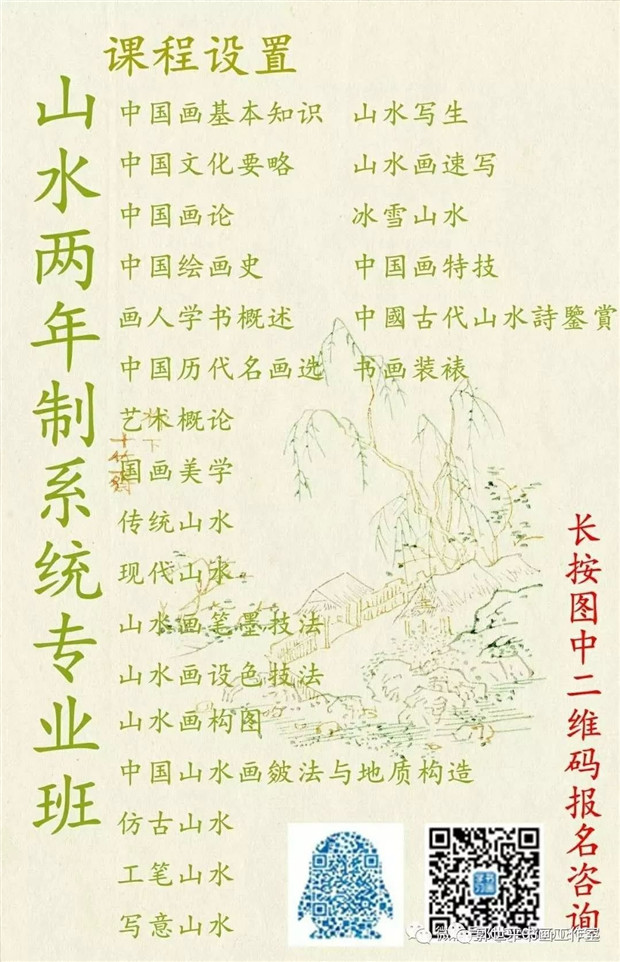 课程设置
山水两年制系统专业班
中国画基本知识
中国文化要略
中国画论
中国绘画史
画人学书概述
中国历代名画选
艺术概论
国画美学
传统山水
现代山水
山水画笔墨技法
山水画设色技法
山水画构图
中国山水画皴法与地质构造
仿古山水
工笔山水
写意山水
山水写生
山水画速写
冰雪山水
中国画特技
中國古代山水詩鑒賞
书画装裱
长按图中二维码报名咨询